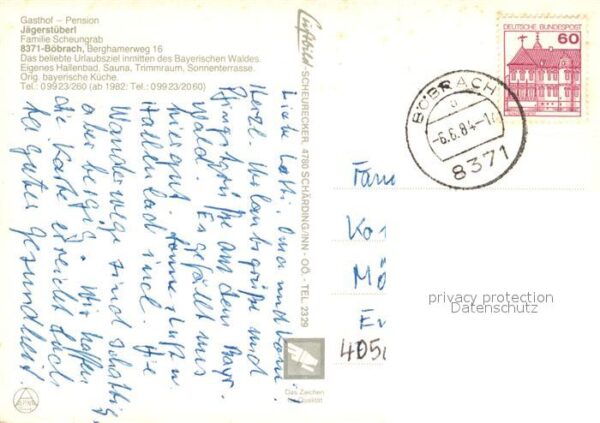 Gasthof – Pension
Jägerstüberl
Familie Scheungrab
8371-Böbrach, Berghamerweg 16
Das beliebte Urlaubsziel inmitten des Bayerischen Waldes.
Eigenes Hallenbad, Sauna, Trimmraum, Sonnenterrasse.
Orig. bayerische Küche.
Tel.: 09923/260 (ab 1982: Tel.: 09923/2060)
Liebe Oma und
Herzl. Urlaubsgrüße und
Pfingstgrüße aus dem Bayr.
Wald. Es gefällt uns
hier gut
Hallenbad incl. Die
Wanderwege sind schattig
aber bergig. Wir hoffen
die Karte erreicht Euch
bei guter Gesundheit.
Luftbild SCHEURECKER, 4780 SCHÄRDING/INN - OÖ - TEL. 2329
Das Zeichen
für Qualität
DEUTSCHE BUNDESPOST
60
BÖBRACH
a
-6.6.84-1
8371
Fam
Mö
405
privacy protection
Datenschutz